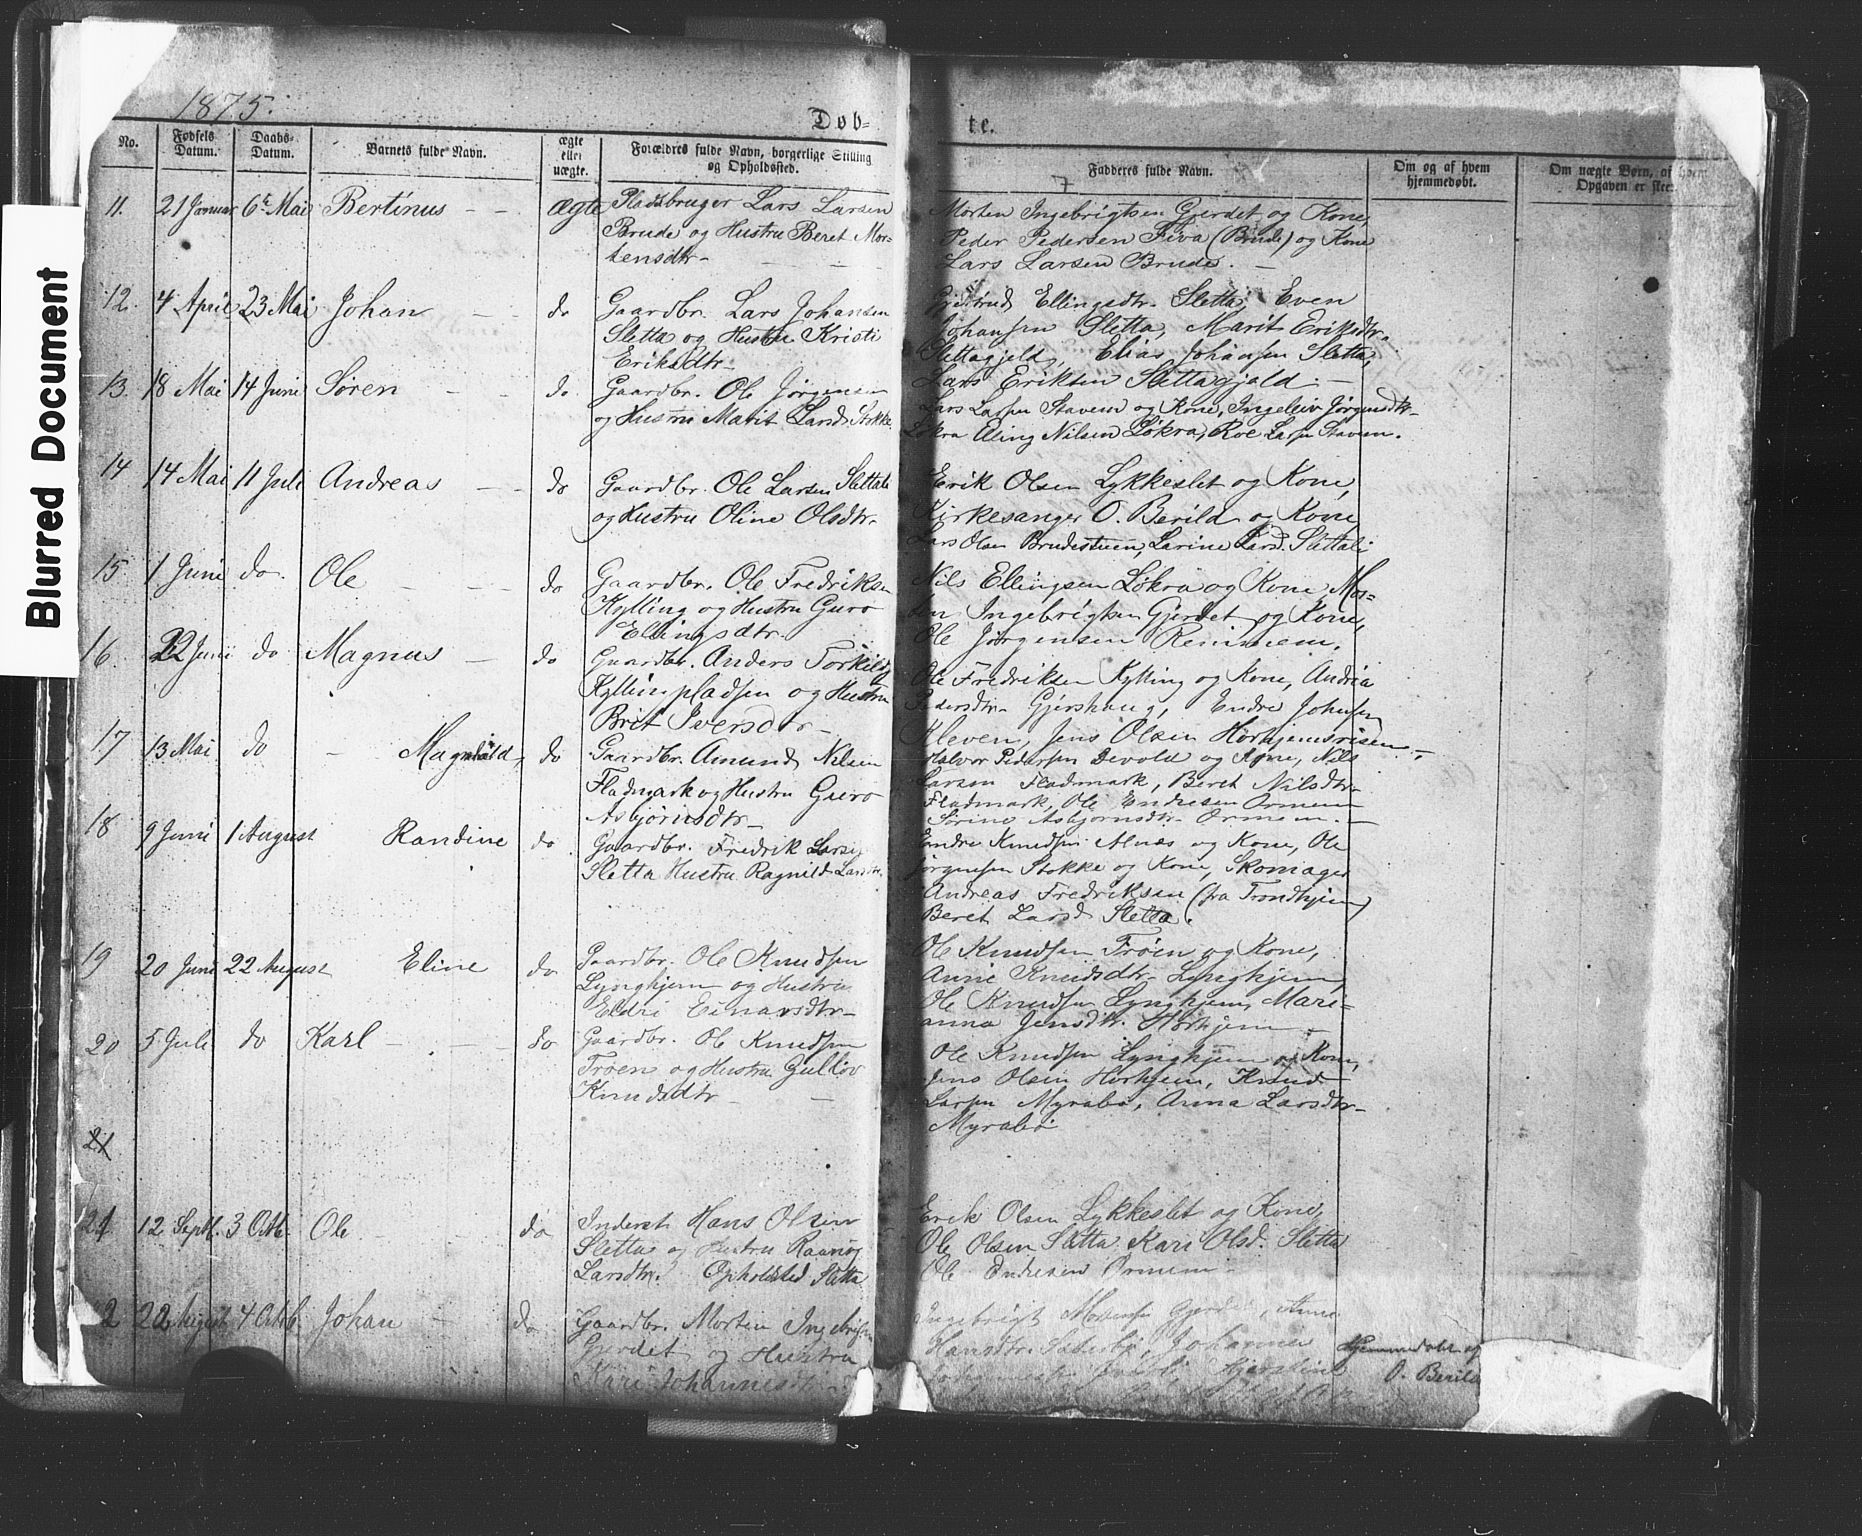 Blurred Document
1875.
Døb-
te.
No.
Fødsels Datum.
Daabs-Datum.
Barnets fulde Navn.
ægte eller uægte.
Forældres fulde Navn, borgerlige Stilling og Opholdssted.
Fadderes fulde Navn.
Om og af hvem hjemmedøbt.
Om uægte Børn, af hvem Opgaven er skeet.
7
11. 21 Januar 6te Mai Bertinus ægte
Pladsbruger Lars Larsen
Brude og Hustru Beret Mor-
tensdtr.
Morten Ingebrigtsen Gjerdet og Kone,
Peder Pedersen Fiva (Brude) og Kone
Lars Larsen Brude.
12. 4 April 23 Mai Johan do
Gaardbr. Lars Johansen
Sletta og Hustru Kristi
Eriksdtr.
Gjertrud Ellingsdtr. Sletta, Even
Johansen Sletta, Marit Eriksdtr.
Slettagjeld, Elias Johansen Sletta,
Lars Eriksen Slettagjeld.
13. 18 Mai 14 Juni Søren do.
Gaardbr. Ole Jørgensen
og Hustru Marit Larsd. Stokke.
Lars Larsen Stavem og Kone, Ingeleiv Jørgensdtr.
Løkra Nilsen Løkra, Roe Larsen Stavem.
14 14 Mai 11 Juli Andreas do
Gaardbr. Ole Larsen Slettali
og Hustru Oline Olsdtr.
Erik Olsen Lykkeslet og Kone,
Kirkesanger O. Berild og Kone
Lars Olsen Brudestuen, Larine Larsd. Slettali
15 1 Juni do. Ole do
Gaardbr. Ole Fredriksen
Kylling og Hustru Guro
Ellingsdtr.
Nils Ellingsen Løkra og Kone, Mor-
ten Ingebrigtsen Gjerdet og Kone,
Ole Jørgensen Remmem.
16. 22 Juni do Magnus do
Gaardbr. Anders Torkilds.
Kyllingpladsen og Hustru
Brit Iversdtr.
Ole Fredriksen Kylling og Kone, Andria
Pedersdtr. Gjershaug, Endre Johnsen
Kleven, Jens Olsen Horhjemsrisen.
17 13 Mai do Magnhild do
Gaardbr. Amund Nilsen
Fladmark og Hustru Guro
Asbjørnsdtr.
Halvor Pedersen Devold og Kone, Nils
Larsen Fladmark, Beret Nilsdtr.
Fladmark, Ole Endresen Ormem
Sørine Asbjørnsdtr. Ormem.
18 9 Juni 1 August Randine do
Gaardbr. Fredrik Larsen
Sletta Hustru Ragnild Larsdtr.
Endre Knudsen Alnæs og Kone, Ole
Jørgensen Stokke og Kone, Skomager
Andreas Fredriksen (fra Trondhjem)
Beret Larsd. Sletta.
19 20 Juni 22 August Eline do
Gaardbr. Ole Knudsen
Lynghjem og Hustru
Eldri Einarsdtr.
Ole Knudsen Trøen og Kone,
Anne Knudsdtr. Lynghjem,
Ole Knudsen Lynghjem, Mari-
anna Jensdtr. Horhjem.
20 5 Juli do Karl do
Gaardbr. Ole Knudsen
Trøen og Hustru Gulløv
Knudsdtr.
Ole Knudsen Lynghjem og Kone,
Jens Olsen Horhjem, Knud
Larsen Myrabø, Anna Larsdtr.
Myrabø
21
21 12 Septb. 3 Octb. Ole do
Inderst Hans Olsen
Sletta og Hustru Raanög
Larsdtr. Opholdsted Sletta
Erik Olsen Lykkeslet og Kone,
Ole Olsen Sletta Kari Olsd. Sletta
Ole Endresen Ormem.
2 22 August 4 Octb. Johan do
Gaardbr. Morten Ingebrigtsen
Gjerdet og Hustru
Kari Johannesdtr.
Ingebrigt Mortensen Gjerdet, Anne
Hansdtr. Johanne
Hjemmedøbt af
O. Berild